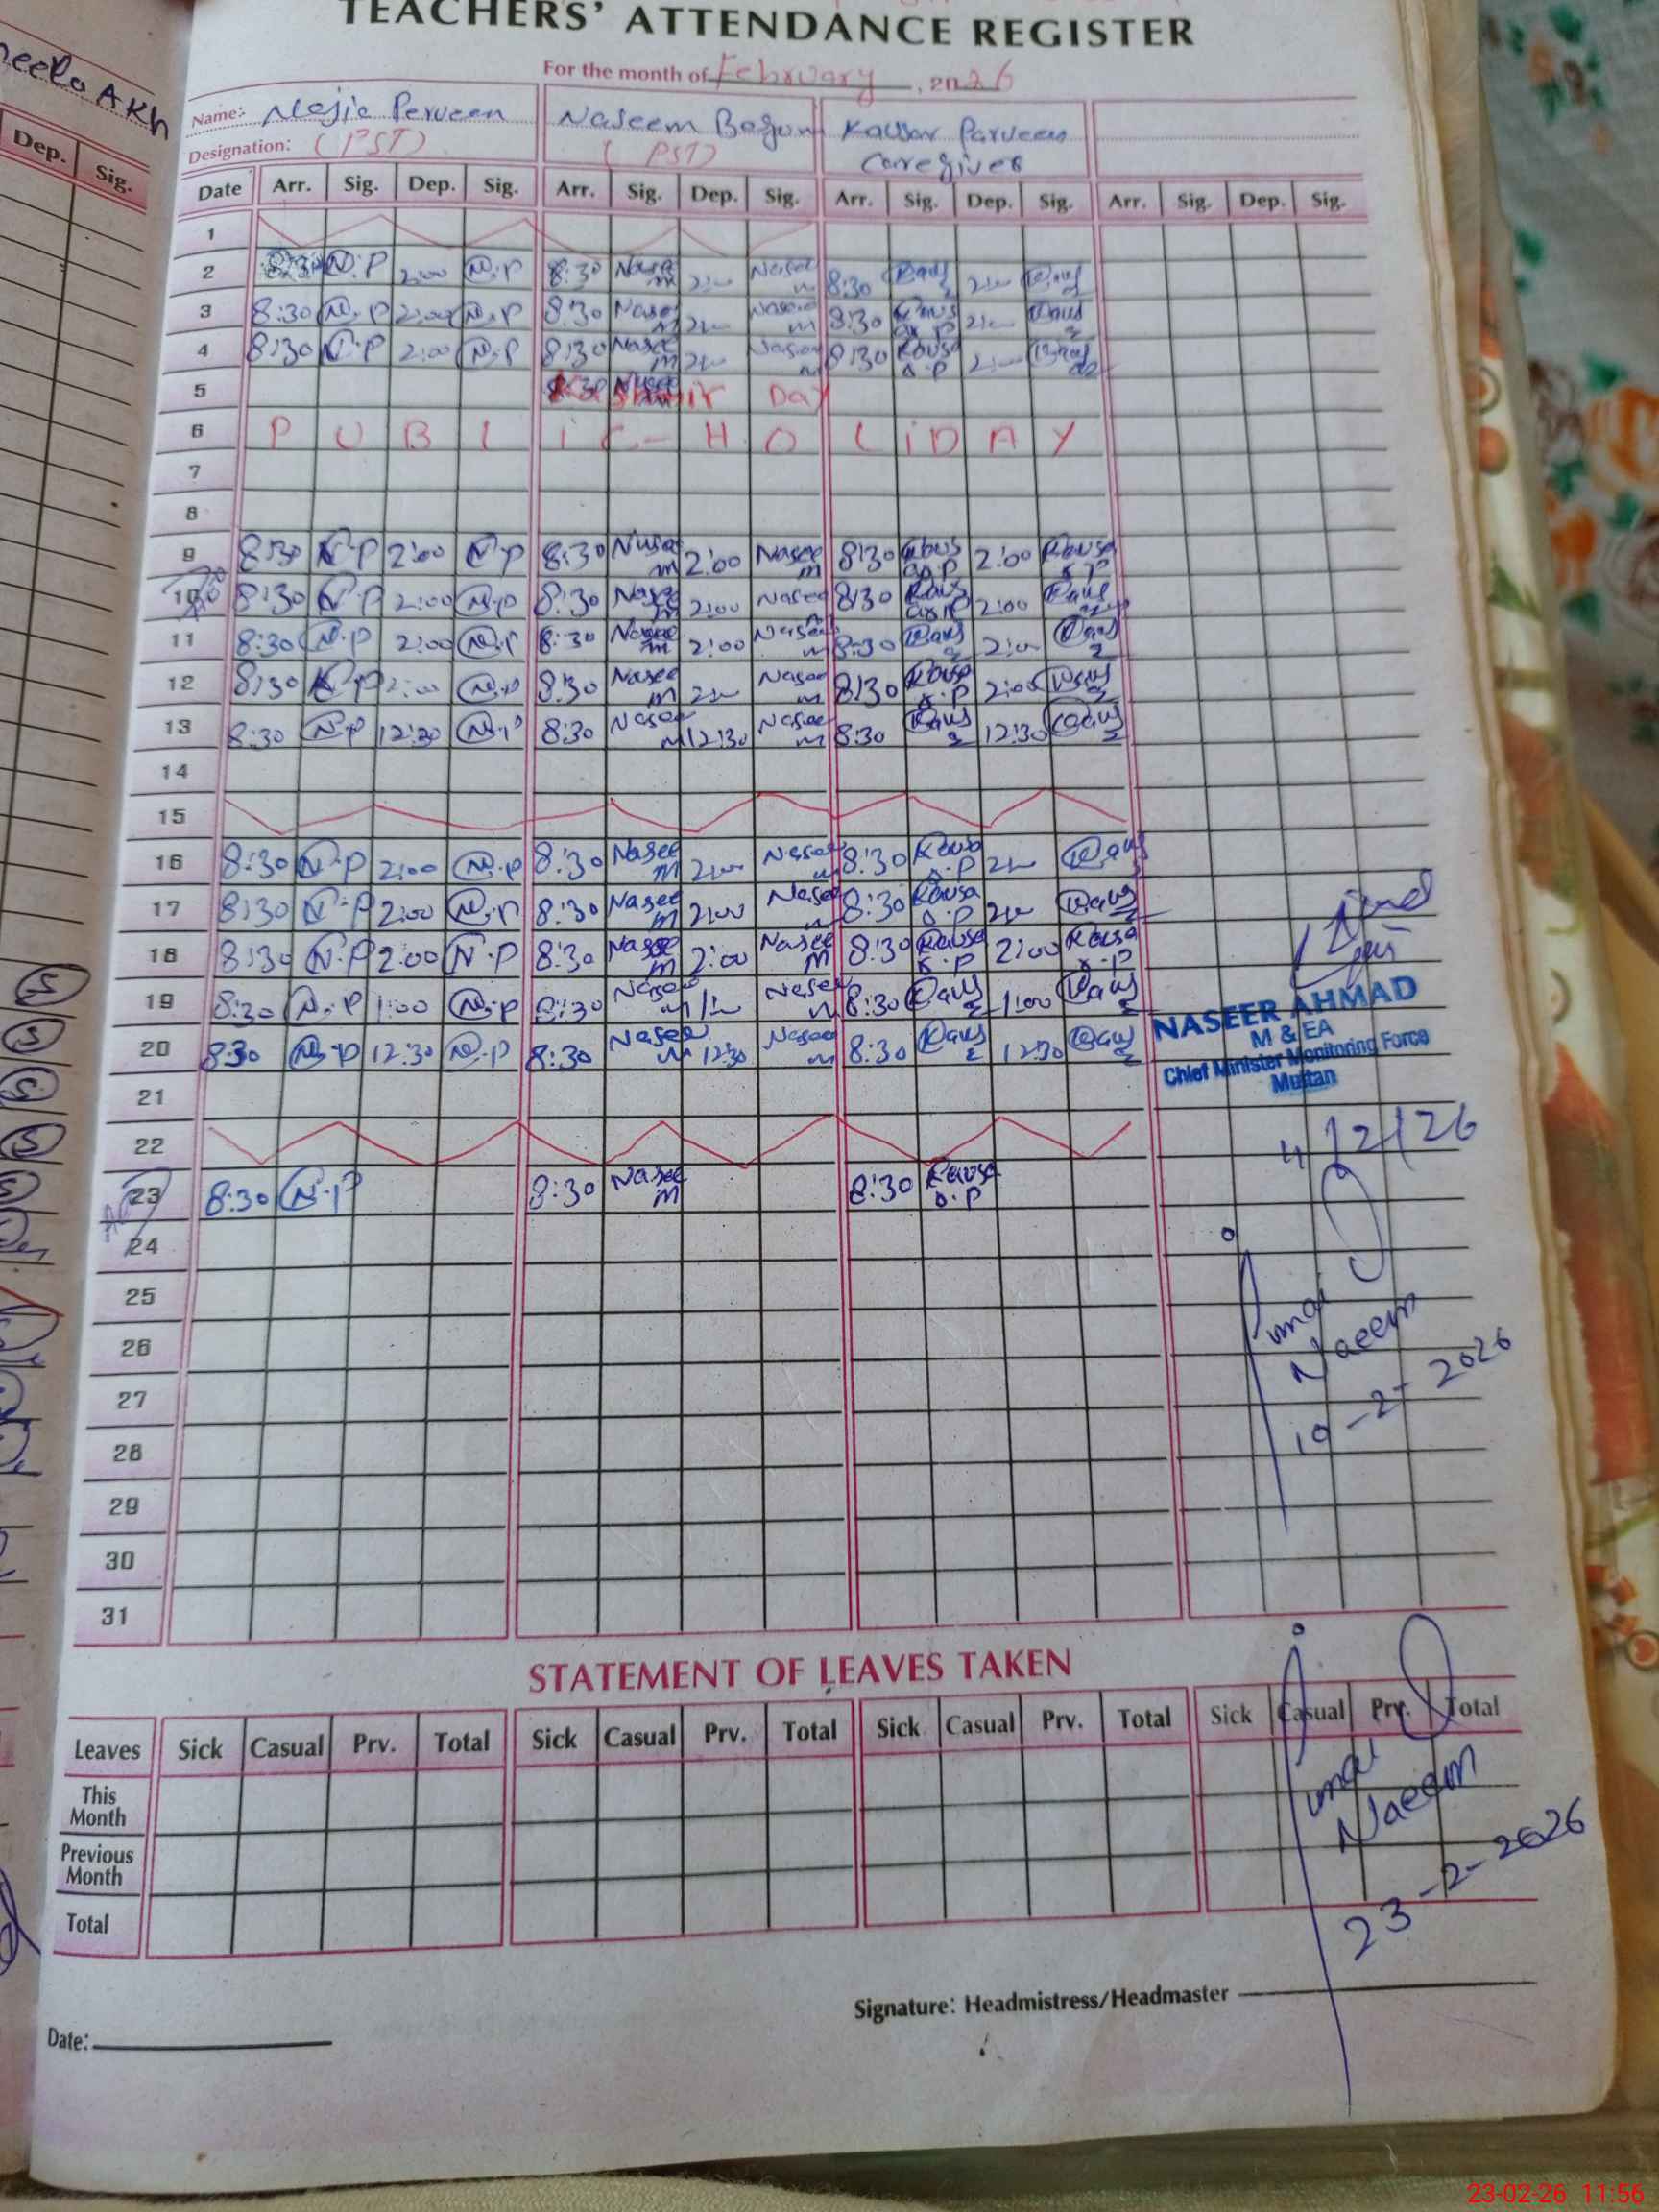 TEACHERS' ATTENDANCE REGISTER
For the month of February, 2026
eela AKh
Name: Najia Perveen Naseem Begum Kausar Parveen
Designation: (PST) (PST) Caregiver
Dep. Sig.
Date Arr. Sig. Dep. Sig. Arr. Sig. Dep. Sig. Arr. Sig. Dep. Sig. Arr. Sig. Dep. Sig.
1
2 8:30 N.P 2:00 N.P 8:30 Naseem 2:00 Naseem 8:30 Kaus 2:00 Kaus
3 8:30 N.P 2:00 N.P 8:30 Naseem 2:00 Naseem 8:30 Kausar.P 2:00 Kaus
4 8:30 N.P 2:00 N.P 8:30 Naseem 2:00 Naseem 8:30 Kausar.P 2:00 Kaus
5 8:30 Day
6 PUBLiC-HOLiDAY
7
8
9 8:30 N.P 2:00 N.P 8:30 Naseem 2:00 Naseem 8:30 Kausar.P 2:00 Kausar.P
10 8:30 N.P 2:00 N.P 8:30 Naseem 2:00 Naseem 8:30 Kausar.P 2:00 Kaus
11 8:30 N.P 2:00 N.P 8:30 Naseem 2:00 Naseem 8:30 Kaus 2:00 Kaus
12 8:30 N.P 2:00 N.P 8:30 Naseem 2:00 Naseem 8:30 Kausar.P 2:00 Kaus
13 8:30 N.P 12:30 N.P 8:30 Naseem 12:30 Naseem 8:30 Kaus 12:30 Kaus
14
15
16 8:30 N.P 2:00 N.P 8:30 Naseem 2:00 Naseem 8:30 Kausar.P 2:00 Kaus
17 8:30 N.P 2:00 N.P 8:30 Naseem 2:00 Naseem 8:30 Kausar.P 2:00 Kaus
18 8:30 N.P 2:00 N.P 8:30 Naseem 2:00 Naseem 8:30 Kausar.P 2:00 Kausar.P
19 8:30 N.P 1:00 N.P 8:30 Naseem 1:00 Naseem 8:30 Kaus 1:00 Kaus
20 8:30 N.P 12:30 N.P 8:30 Naseem 12:30 Naseem 8:30 Kaus 12:30 Kaus
NASEER AHMAD
M & EA
Chief Minister Monitoring Force
Multan
21
22
4/2/26
23 8:30 N.P 8:30 Naseem 8:30 Kausar.P
24
25
26
Naeem
27
10-2-2026
28
29
30
31
STATEMENT OF LEAVES TAKEN
Leaves Sick Casual Prv. Total Sick Casual Prv. Total Sick Casual Prv. Total Sick Casual Prv. Total
This Month
Previous Month
Naeem
Total
23-2-2026
Signature: Headmistress/Headmaster
Date:
23-02-26 11:56